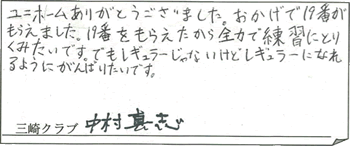 ユニホームありがとうございました。おかげで19番が
もらえました。19番をもらえたから全力で練習にとり
くみたいです。でもレギュラーじゃないけどレギュラーになれ
るようにがんばりたいです。
三崎クラブ 中村真志